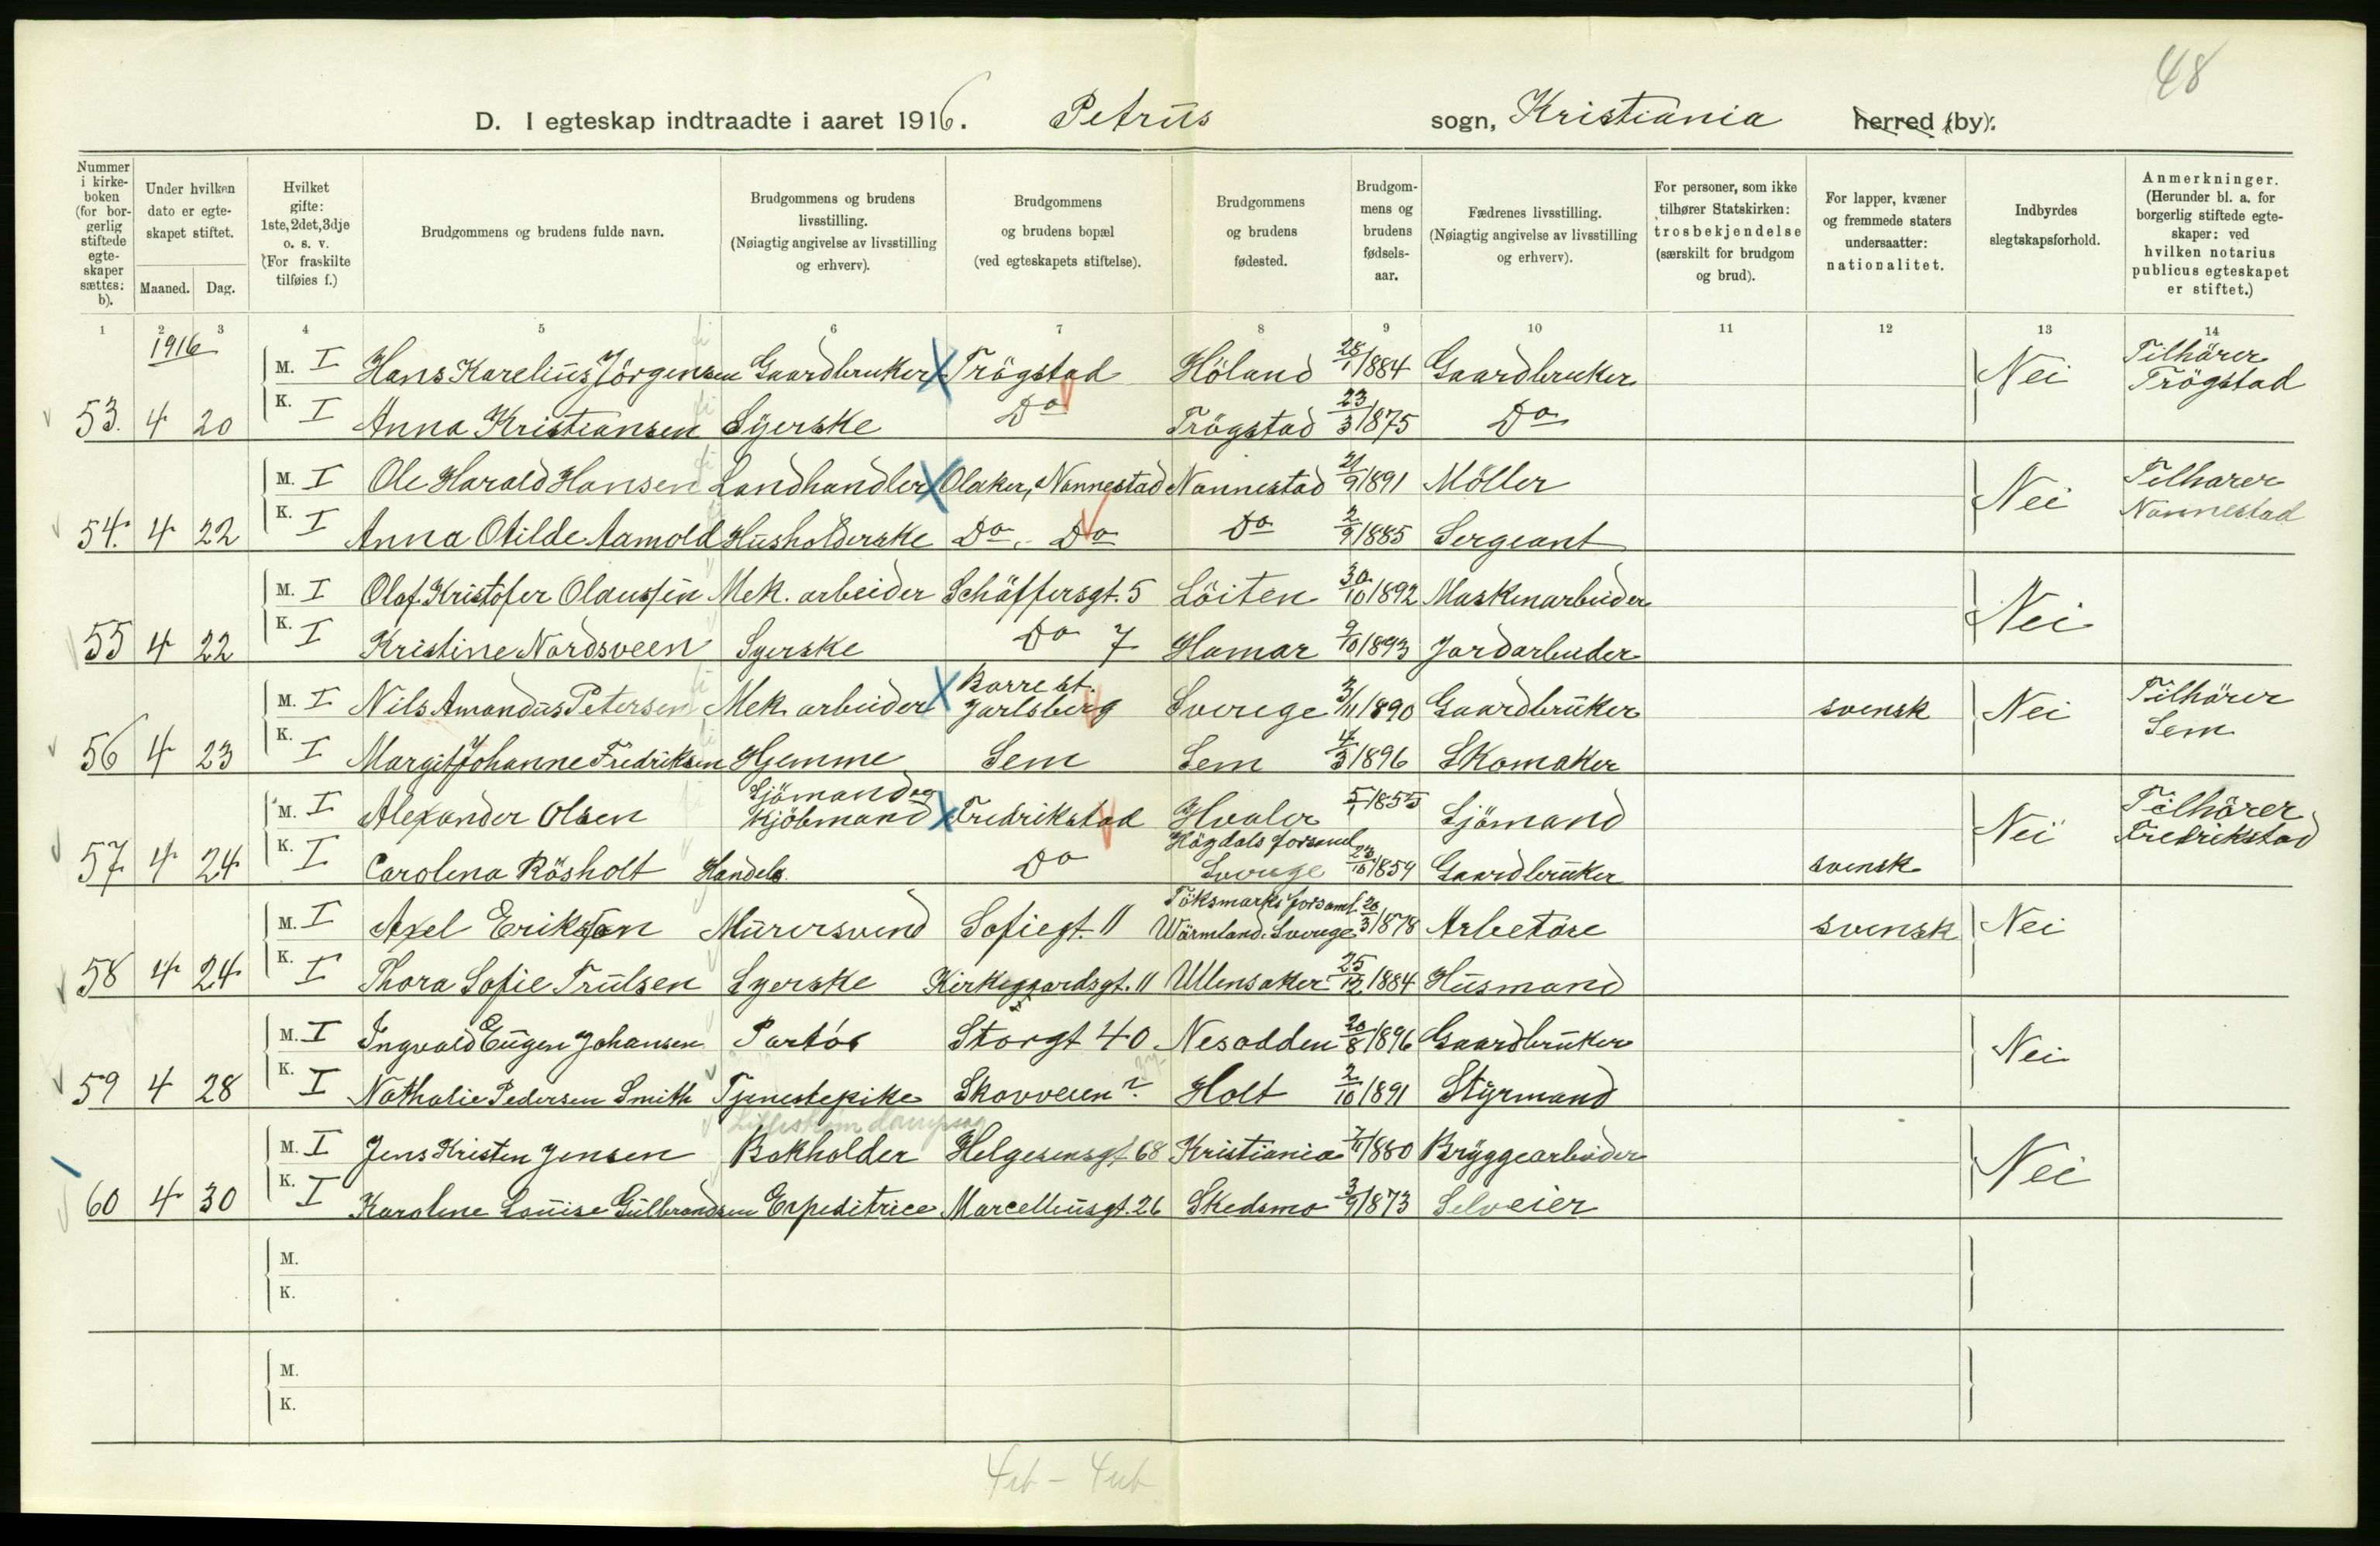 48
D. I egteskap indtraadte i aaret 1916. Petrus sogn, Kristiania herred (by).
Nummer i kirkeboken (for borgerlig stiftede egteskaper sættes: b).
Under hvilken dato er egteskapet stiftet.
Maaned. Dag.
Hvilket gifte: 1ste, 2det, 3dje o. s. v. (For fraskilte tilføies f.)
Brudgommens og brudens fulde navn.
Brudgommens og brudens livsstilling. (Nøiagtig angivelse av livsstilling og erhverv).
Brudgommens og brudens bopæl (ved egteskapets stiftelse).
Brudgommens og brudens fødested.
Brudgommens og brudens fødselsaar.
Fædrenes livsstilling. (Nøiagtig angivelse av livsstilling og erhverv).
For personer, som ikke tilhører Statskirken: trosbekjendelse (særskilt for brudgom og brud).
For lapper, kvæner og fremmede staters undersaatter: nationalitet.
Indbyrdes slegtskapsforhold.
Anmerkninger. (Herunder bl. a. for borgerlig stiftede egteskaper: ved hvilken notarius publicus egteskapet er stiftet.)
1 2 3 4 5 6 7 8 9 10 11 12 13 14
1916
M. I Hans Karelius Jörgensen Gaardbruker Trögstad Höland 28/1 1884 Gaardbruker Nei Tilhörer Trögstad
53. 4 20 K. I Anna Kristiansen Syerske Do Trögstad 23/3 1875 Do
M. I Ole Harald Hansen Landhandler Olaker, Nannestad Nannestad 21/9 1891 Möller Nei Tilhorer Nannestad
54. 4 22 K. I Anna Otilde Aamold Husholderske Do, Do Do 2/9 1885 Sergeant
M. I Olaf Kristofer Olaussen Mek. arbeider Schäffersgt. 5 Löiten 30/10 1892 Maskinarbeider Nei
55 4 22 K. I Kristine Nordsveen Syerske Do 7 Hamar 9/10 1893 Jordarbeider
M. I Nils Amandus Petersen Mek. arbeider Borre st. Jarlsberg Sverige 3/11 1890 Gaardbruker svensk Nei Tilhörer Sem
56 4 23 K. I Margit Johanne Fredriksen Hjemme Sem Sem 4/3 1896 Skomaker
M. I Alexander Olsen Sjömand og Kjöbmand Fredrikstad Hvaler 5/1 1855 Sjömand Nei Tilhörer Fredrikstad
57 4 24 K. I Carolina Rösholt Handels. Do Högdals forsaml Sverige 23/10 1859 Gaardbruker svensk
M. I Axel Eriksson Murersvend Sofiegt. 11 Töksmarks forsaml. Wärmland. Sverige 20/3 1878 Arbetare svensk Nei
58 4 24 K. I Thora Sofie Trulsen Syerske Kirkegaardsgt. 11 Ullensaker 25/12 1884 Husmand
M. I Ingvald Eugen Johansen Portör Storgt 40 Nesodden 20/8 1896 Gaardbruker Nei
59 4 28 K. I Nathalie Pedersen Smith Tjenestepike Skovveien ? Holt 2/10 1891 Styrmand
M. I Jens Kristen Jensen Bokholder Helgesensgt 68 Kristiania 7/11 1880 Bryggearbeider Nei
60 4 30 K. I Karoline Louise Gulbrandsen Expeditrice Marcellusgt. 26 Skedsmo 3/9 1873 Selveier
M.
K.
M.
K.